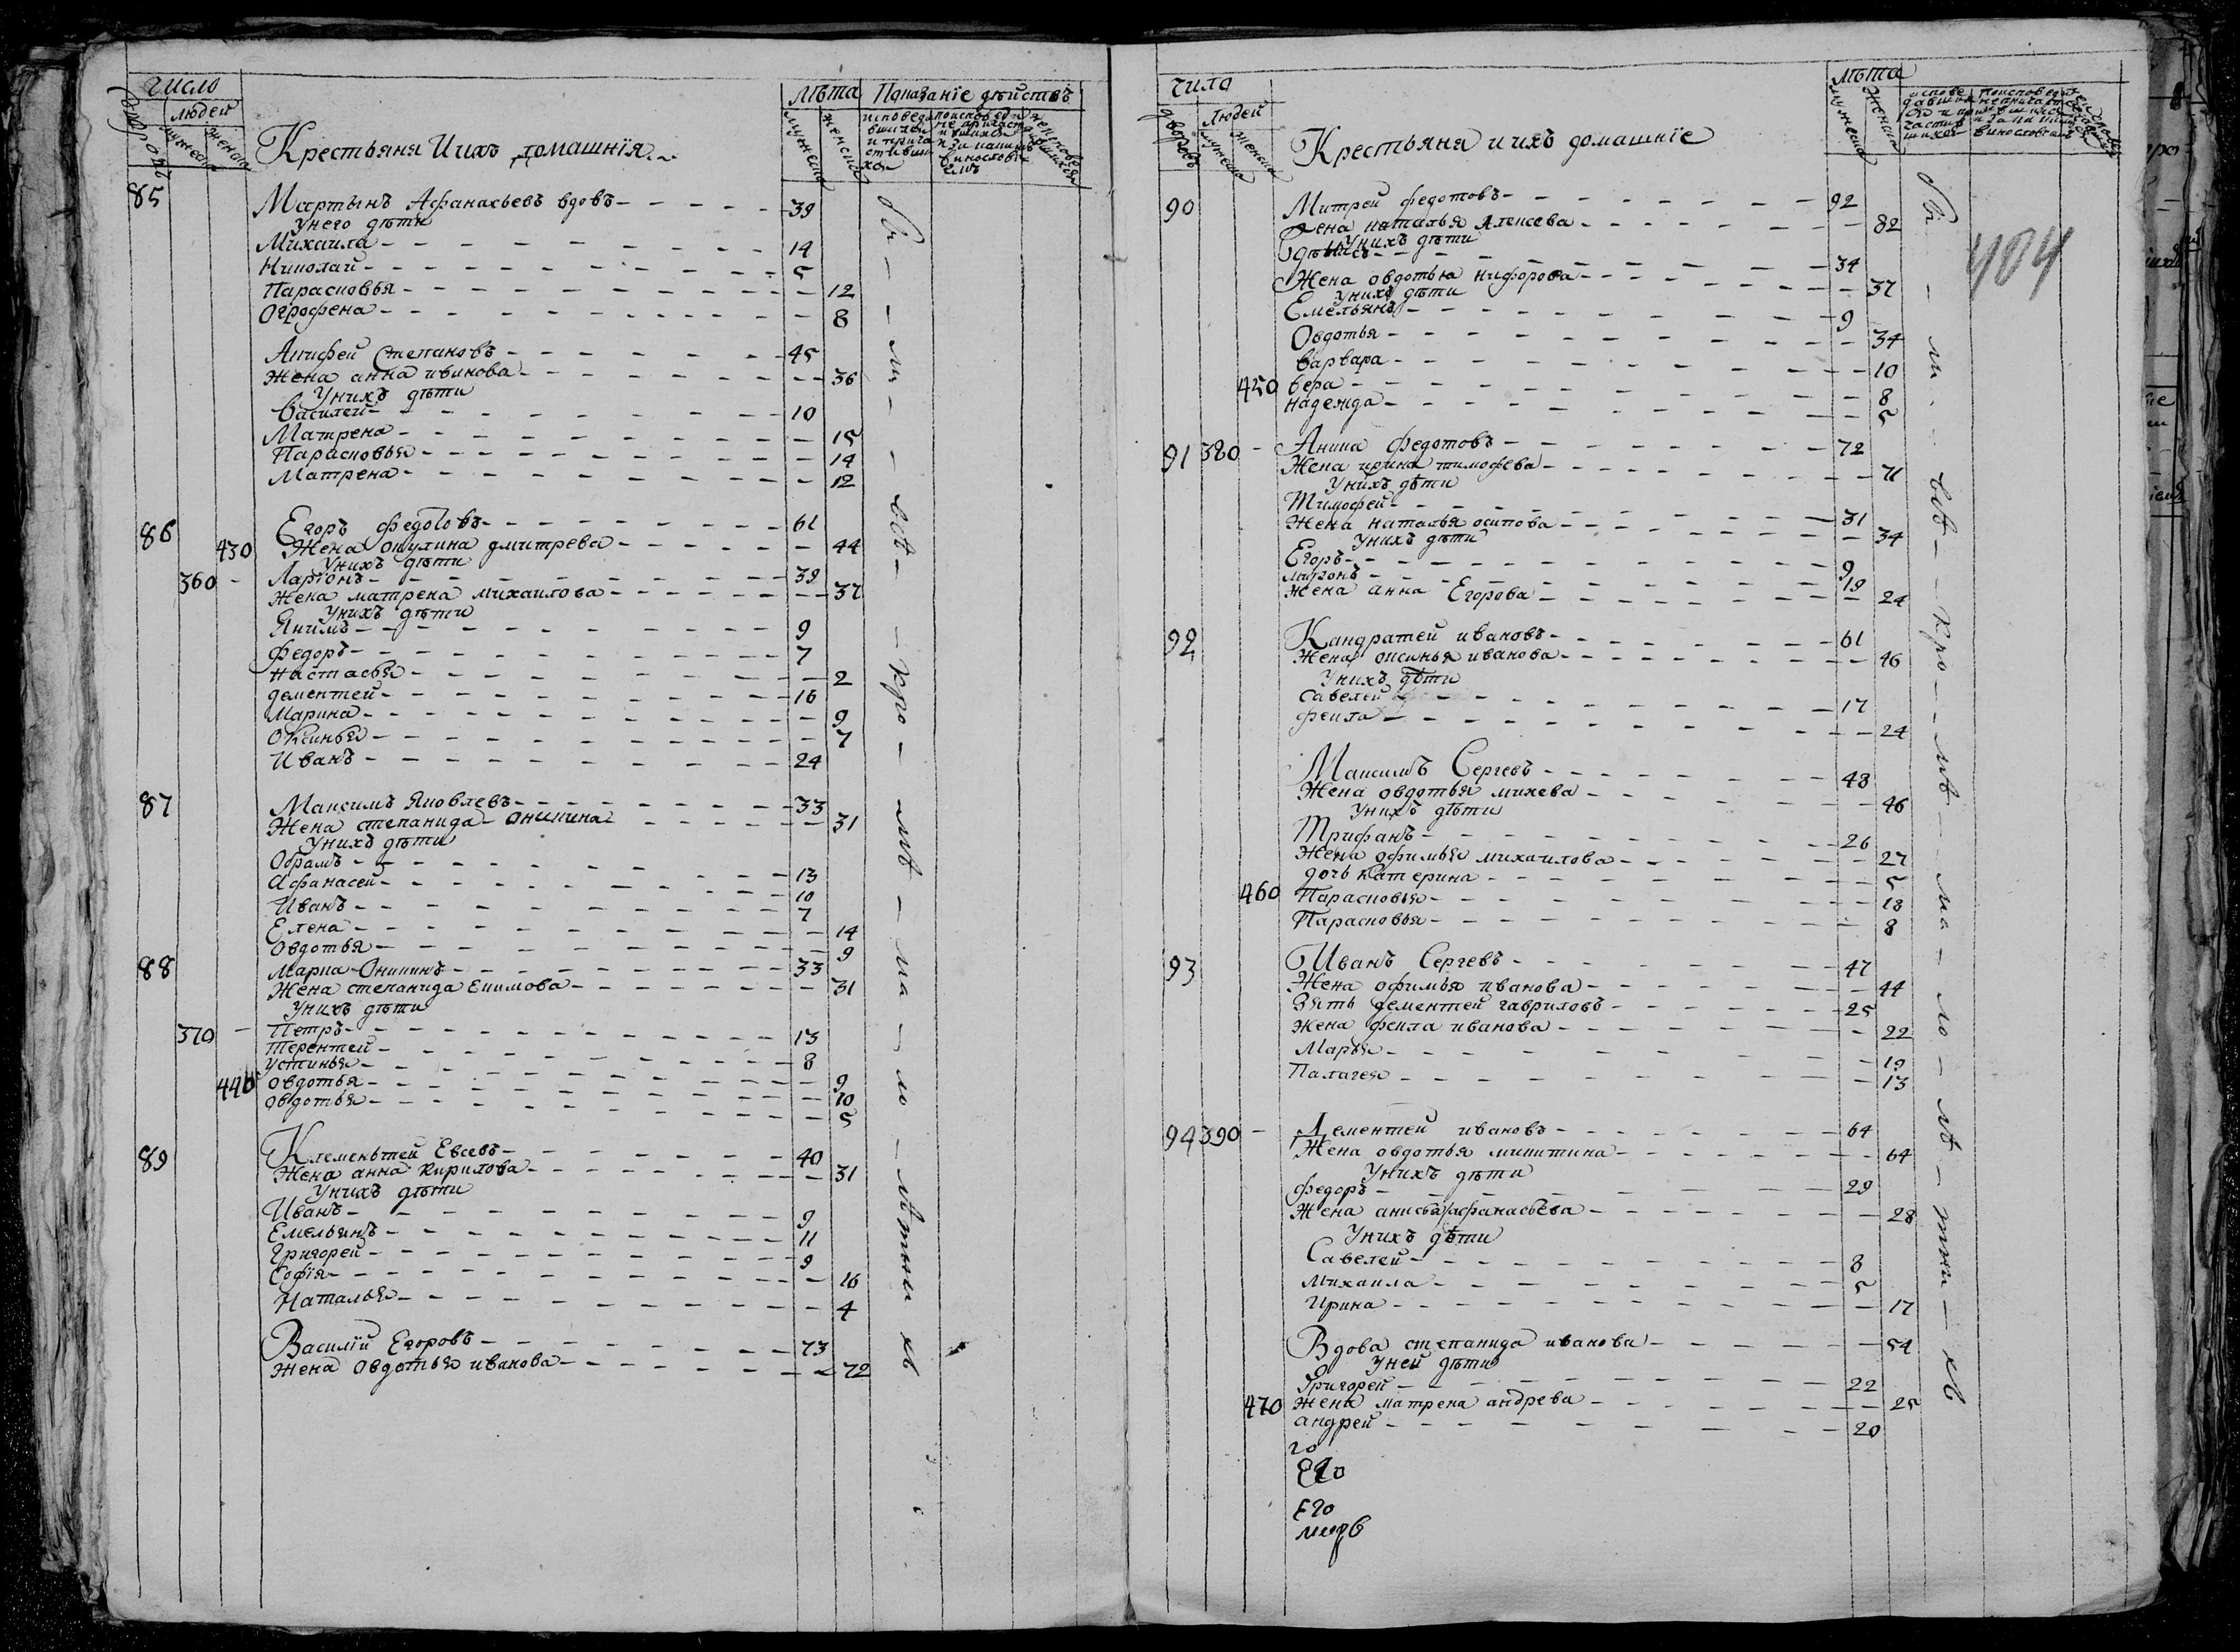 число
людей
дворовъ
мужеска
женска
Крестьяня Иихъ домашнія
лѣта
Показаніе дѣйствъ
мужеска
женска
85 Мартынъ Афанасьевъ вдовъ 39
Унего дѣти
Михаила 14
Николай 5
Парасковья 12
Огрофена 8
Аникей Степановъ 45
Жена анна иванова 36
Унихъ дѣти
Василей 10
Матрена 15
Парасковья 14
Матрена 12
86 Егоръ федотовъ 61
430 Жена окулина дмитрева 44
Унихъ дѣти
360 Ларіонъ 39
Жена матрена михаилова 37
Унихъ дѣти
Якимъ 9
федоръ 7
настасья 2
дементей 16
Марина 9
Оксинья 7
Иванъ 24
87 Максимъ Яковлевъ 33
Жена степанида Оникина 31
Унихъ дѣти
Обрамъ 13
Афанасей 10
Иванъ 7
Елена 14
Овдотья 9
88 Марка Оникинъ 33
Жена степанида Екимова 31
Унихъ дѣти
370 Петръ 13
Терентей 8
устинья 9
440 овдотья 10
овдотья 5
89 Клеменьтей Евсевъ 40
Жена анна кирилова 31
Унихъ дѣти
Иванъ 9
Емельянъ 11
Григорей 9
Софія 16
Наталья 4
Василій Егоровъ 73
Жена Овдотья иванова 72
бы — ли — всѣ — кро — мѣ — ма — ло — лѣтны хъ
число
людей
дворовъ
мужеска
женска
Крестьяня иихъ домашніе
лѣта
мужеска
женска
404
90 Митрей федотовъ 92
Жена наталья Алексева 82
Унихъ дѣти
34
Жена овдотья никофорова 37
Унихъ дѣти
Емельянъ 9
Овдотья 34
варвара 10
450 вера 8
надежда 5
91 380 Аника федотовъ 72
Жена ирина тимофева 71
Унихъ дѣти
Тимофей 31
Жена наталья осипова 34
Унихъ дѣти
Егоръ 9
миронъ 19
Жена анна Егорова 24
92 Кандратей ивановъ 61
Жена оксинья иванова 46
Унихъ дѣти
савелей 17
фекла 24
Максимъ Сергевъ 48
Жена овдотья михева 46
Унихъ дѣти
Трифанъ 26
Жена офимья михаилова 27
дочь катерина 5
460 Парасковья 18
Парасковья 8
93 Иванъ Сергевъ 47
Жена офимья иванова 44
Зять дементей гавриловъ 25
Жена фекла иванова 22
Марья 19
Палагея 13
94 390 Дементей ивановъ 64
Жена овдотья микитина 64
Унихъ дѣти
федоръ 29
Жена анисья афанасьева 28
Унихъ дѣти
Савелей 8
Михаила 5
Ирина 17
Вдова степанида иванова 54
Уней дѣти
Григорей 22
470 Жена матрена андрева 25
андрей 20
го
Его
Его
бы — ли — всѣ — кро — мѣ — ма — ло — лѣ — тны — хъ